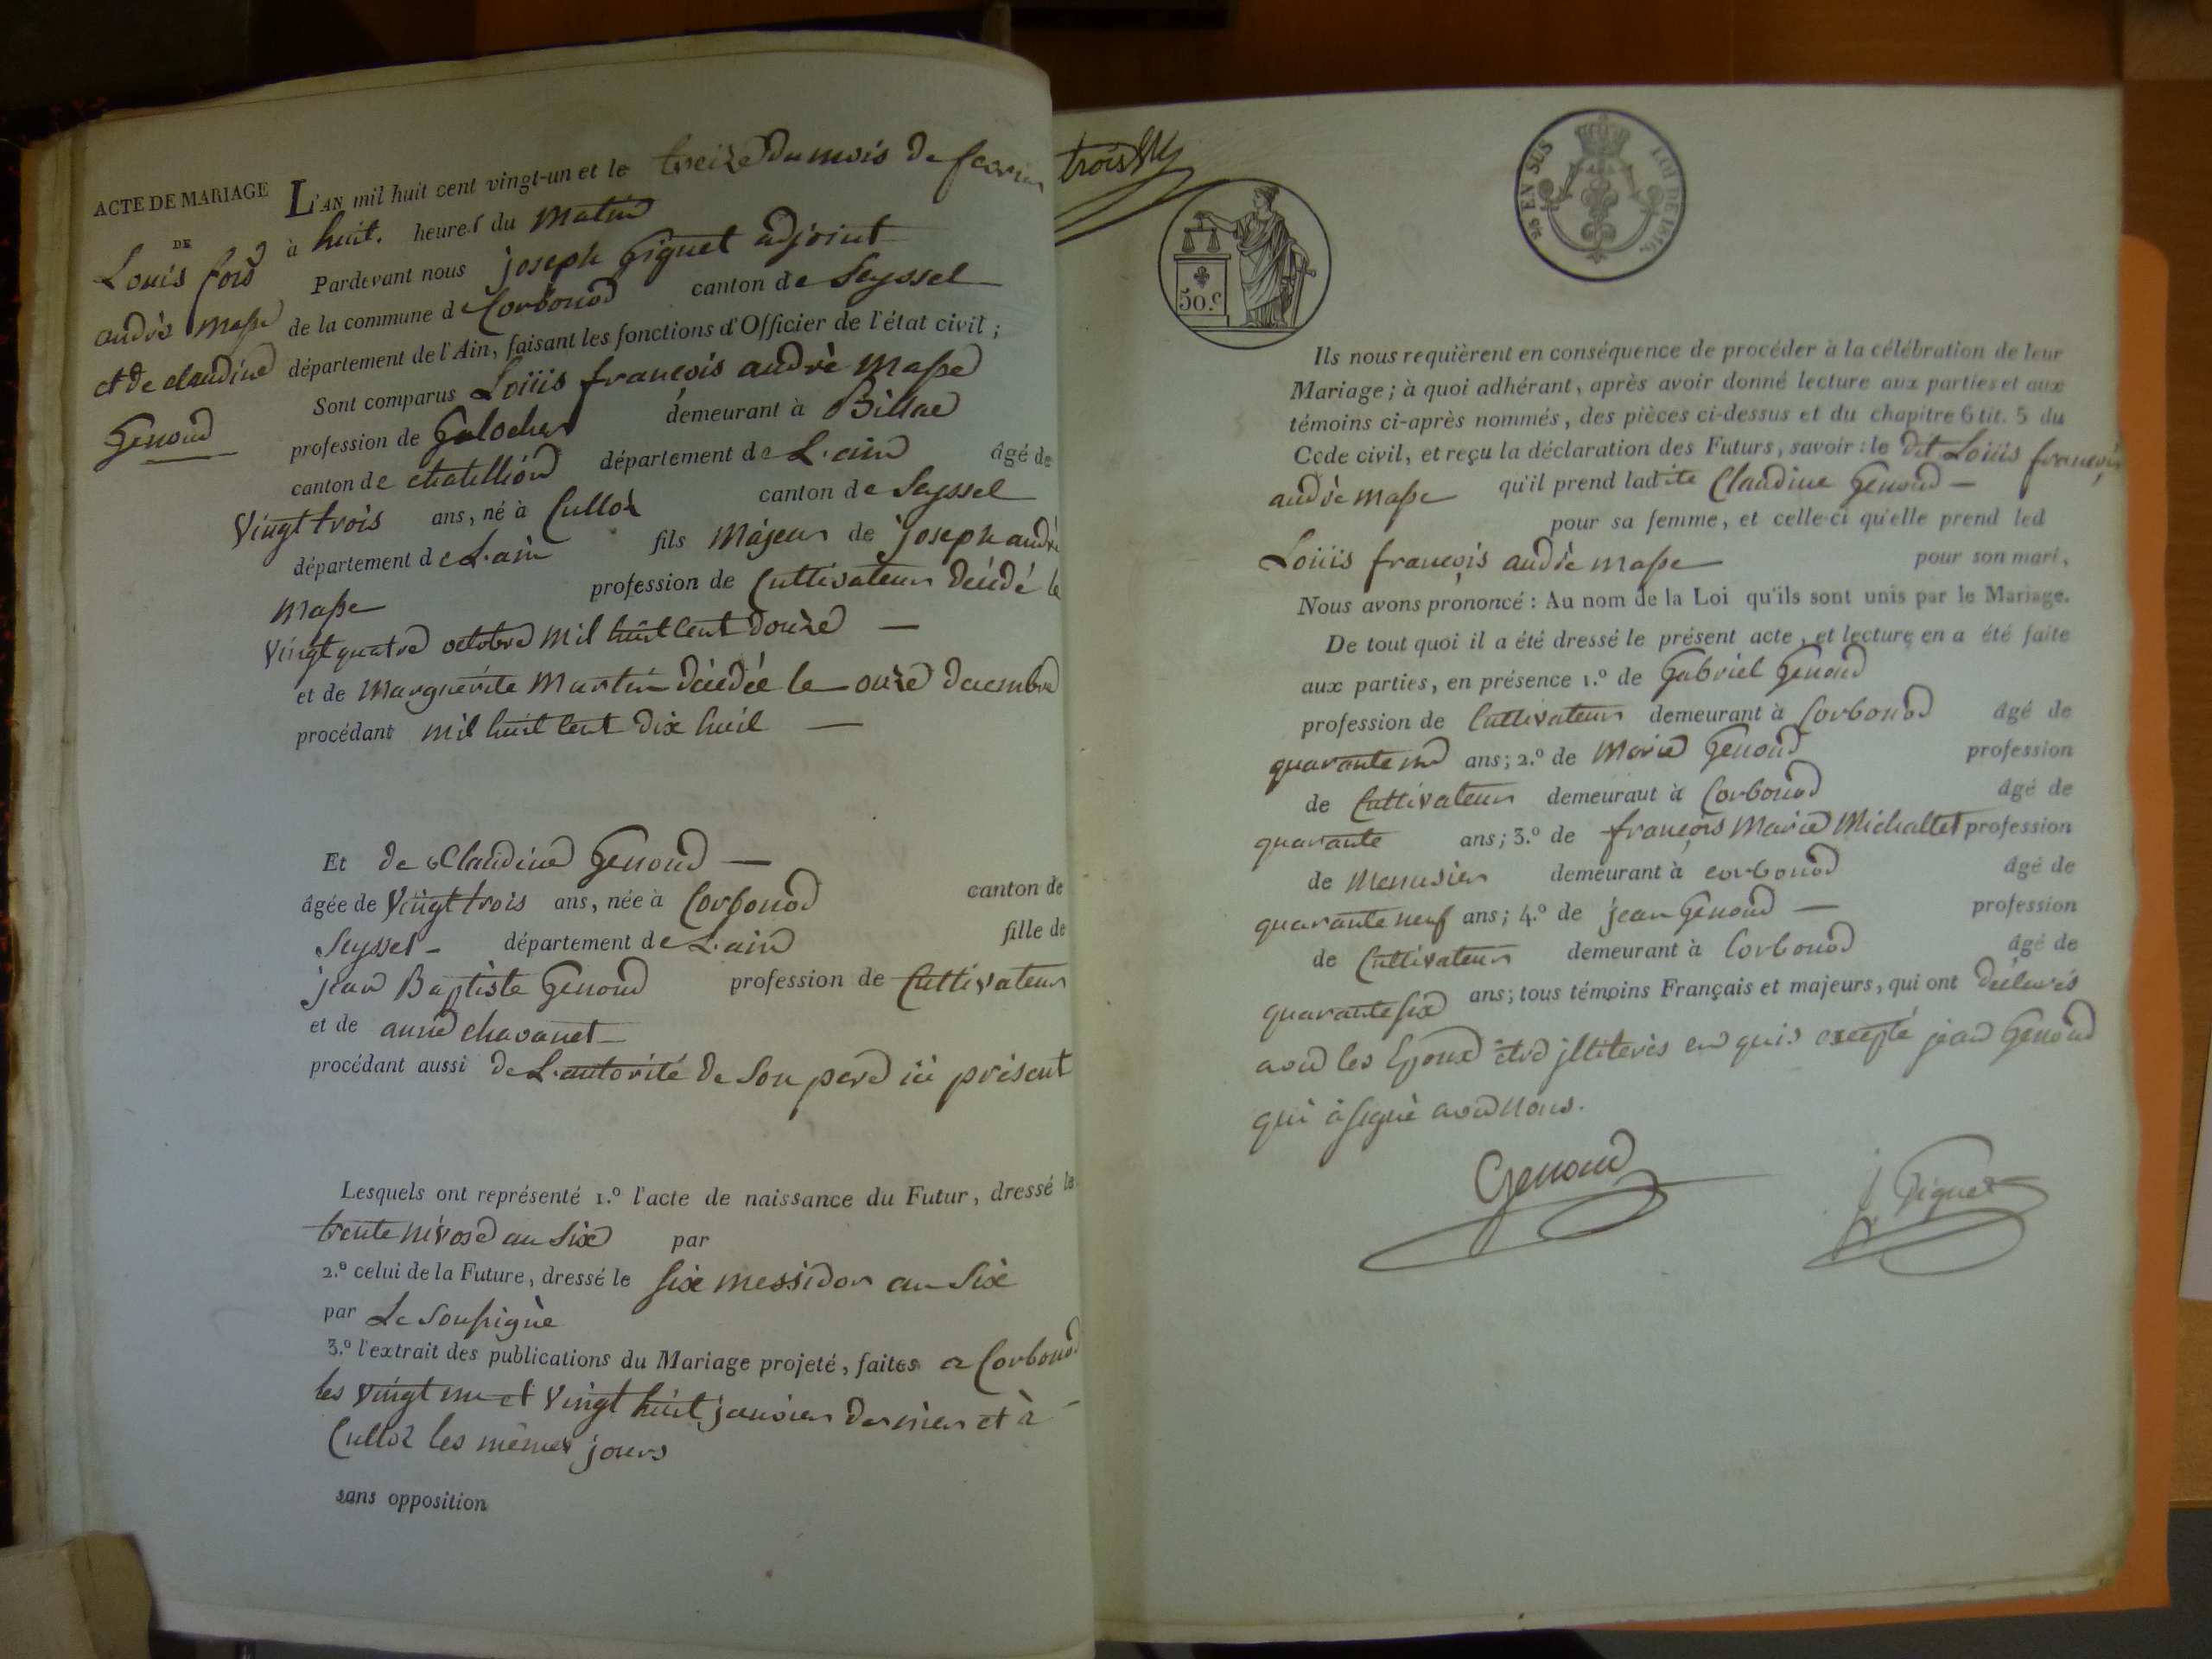 ACTE DE MARIAGE
DE
Louis fois
andré Masse
et de claudine
Genoud
L'AN mil huit cent vingt-un et le treize du mois de fevrier
à huit. heures du Matin
Pardevant nous joseph Giguet adjoint
de la commune de Corbonod canton de Seyssel
département de l'Ain, faisant les fonctions d'Officier de l'état civil ;
Sont comparus Loüis francois andrè Masse
profession de Galocher demeurant à Billac
canton de chatelliond département de L'ain âgé de
vingt trois ans, né à Culloz canton de Seyssel
département de L'ain fils Majeur de joseph andré
Masse profession de Cultivateur décédé le
Vingt quatre octobre mil huit cent douze —
et de Marguerite Martin décédée le onze decembre
procédant mil huit cent dix huit —
Et de Claudine Genoud —
âgée de Vingt trois ans, née à Corbonod canton de
Seyssel – département de L'ain fille de
jean Baptiste Genoud profession de Cultivateur
et de anne chavanet
procédant aussi de L'autorité de Son pere ici présent
Lesquels ont représenté 1.º l'acte de naissance du Futur, dressé le
trente nivose an Six par
2.º celui de la Future, dressé le six messidor an Six
par Le Soussigné
3.º l'extrait des publications du Mariage projeté, faites a Corbonod
les vingt un et vingt huit janvier dernier et à
Culloz les mêmes jours
sans opposition
trois
50.c
EN SUS
LOI DE 1816.
Ils nous requièrent en conséquence de procéder à la célébration de leur
Mariage ; à quoi adhérant, après avoir donné lecture aux parties et aux
témoins ci-après nommés, des pièces ci-dessus et du chapitre 6 tit. 5 du
Code civil, et reçu la déclaration des Futurs, savoir : le dit Loüis françois
andrè Masse qu'il prend ladite Claudine Genoud –
pour sa femme, et celle-ci qu'elle prend led
Loüis françois andrè Masse pour son mari,
Nous avons prononcé : Au nom de la Loi qu'ils sont unis par le Mariage.
De tout quoi il a été dressé le présent acte, et lecture en a été faite
aux parties, en présence 1.º de Gabriel Genoud
profession de Cultivateur demeurant à Corbonod âgé de
quarante un ans ; 2.º de Marie Genoud profession
de Cultivateur demeurant à Corbonod âgé de
quarante ans ; 3.º de françois Marie Michallet profession
de Menusier demeurant à corbonod âgé de
quarante neuf ans ; 4.º de jean Genoud — profession
de Cultivateur demeurant à Corbonod âgé de
quarante six ans ; tous témoins Français et majeurs, qui ont déclarés
avec les Epoux etre jlliterés enquis excepté jean Genoud
qui à signé avec nous.
Genoud
j Giguet